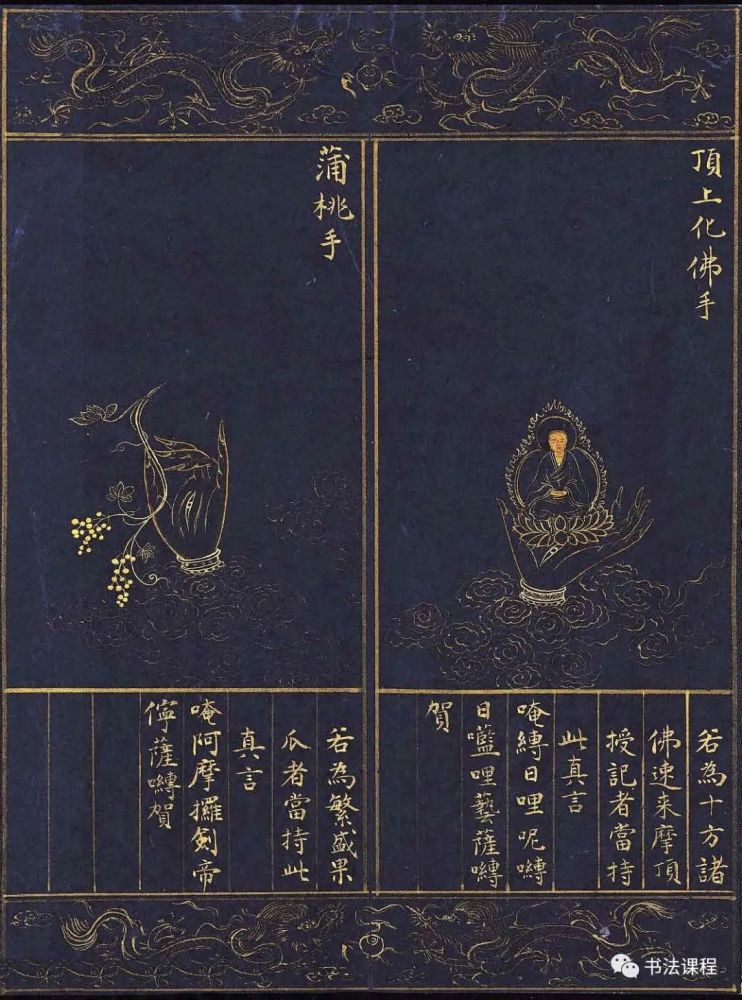 頂上化佛手
若為十方諸
佛速来摩頂
授記者當持
此真言
唵縛日哩呢嚩
日囕哩藝薩嚩
賀
蒲桃手
若為繁盛果
瓜者當持此
真言
唵阿摩攞劍帝
儜薩嚩賀
书法课程